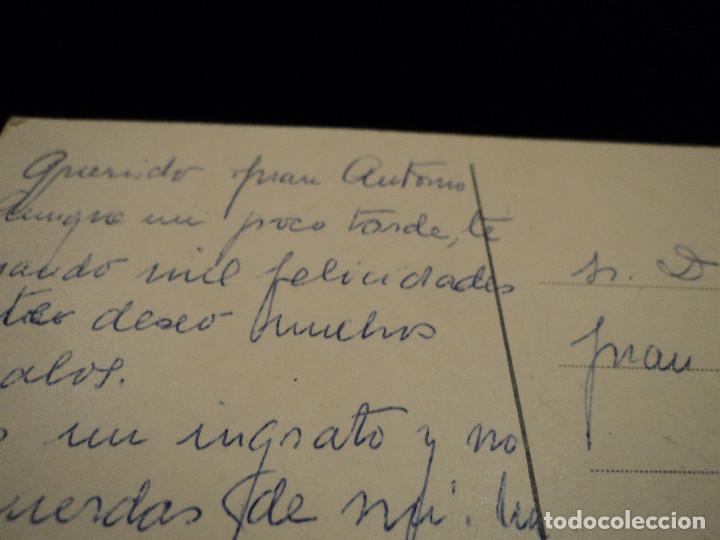 Querido Juan Antonio
aunque un poco tarde, te
mando mil felicidades
deseo muchos
alos.
un ingrato y no
uerdas de mí.
Sr. D
Juan
todocoleccion